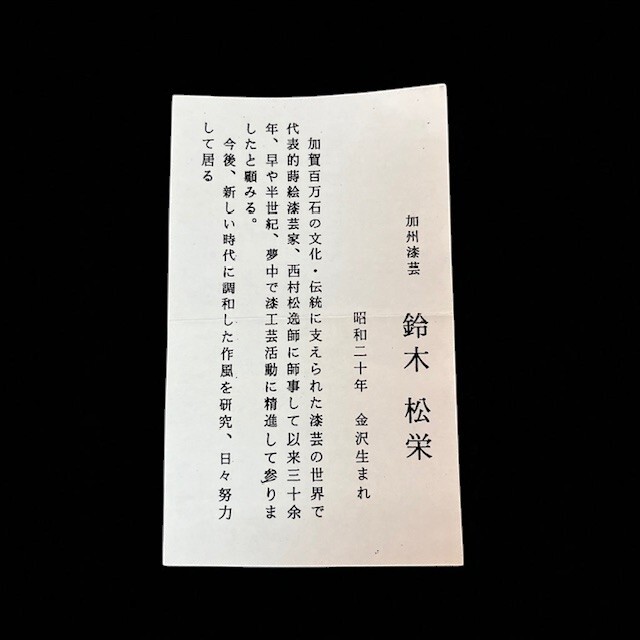 加州漆芸　鈴木　松栄
昭和二十年　金沢生まれ
加賀百万石の文化・伝統に支えられた漆芸の世界で
代表的蒔絵漆芸家、西村松逸師に師事して以来三十余
年、早や半世紀、夢中で漆工芸活動に精進して参りま
したと顧みる。
今後、新しい時代に調和した作風を研究、日々努力
して居る